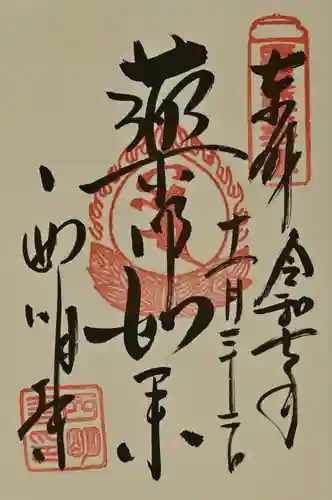 奉拝
令和七年
十一月二十二日
薬師如来
西明寺